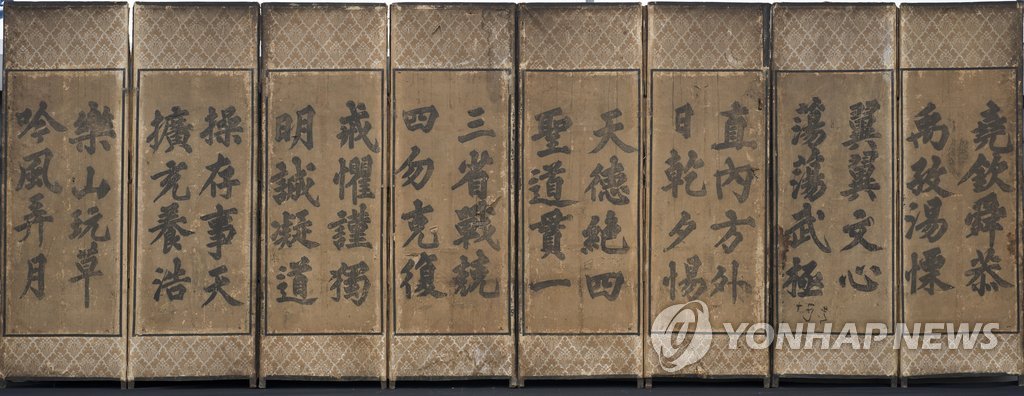 堯欽舜恭
禹孜湯慄
翼翼文心
蕩蕩武極
直內方外
日乾夕惕
天德絶四
聖道貫一
三省戰兢
四勿克復
戒懼謹獨
明誠凝道
操存事天
擴充養浩
樂山玩草
吟風弄月
YONHAP NEWS